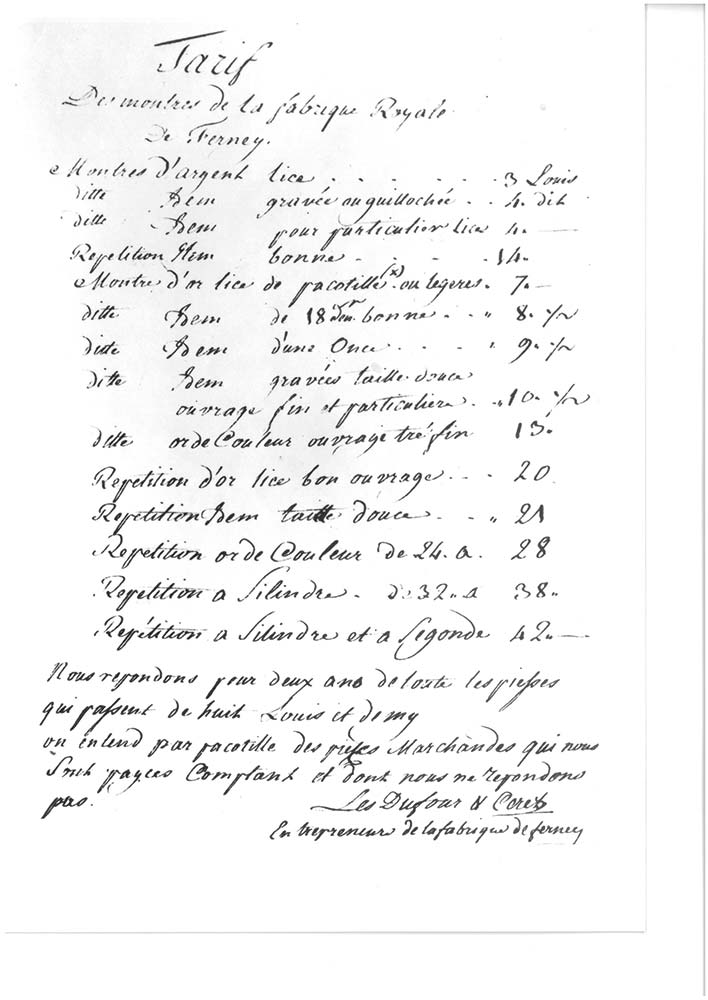 Tarif
Des montres de la fabrique Royale
De Ferney.
Montres d'argent lice . . . . . . 3 Louis
ditte Idem gravée ou guillochée . . 4. dit
ditte Idem pour particulier lice 4. —
Repetition Item bonne . . . . 14.
Montre d'or lice de pacotille (x) ou legeres. 7. —
ditte Idem de 18 den. bonne . . " 8. ½
ditte Idem d'une Once . . . " 9. ½
ditte Idem gravées taille douce
ouvrage fin et particuliere . " 10. ½
ditte or de Couleur ouvrage tré fin 13.
Repetition d'or lice bon ouvrage . . . 20
Repetition Idem taille douce . . " 21
Repetition or de Couleur de 24. a . 28
Repetition a Silindre . de 32 .. a 38 ..
Repétition a Silindre et a Segonde 42 .. —
Nous repondons pour deux ans de toute les piesses
qui passent de huit Louis et demy
on entend par pacotille des pieses Marchandes qui nous
Sont payees Comptant et dont nous ne repondons
pas.
Les Dufour & Ceret
Entrepreneurs de la fabrique de ferney